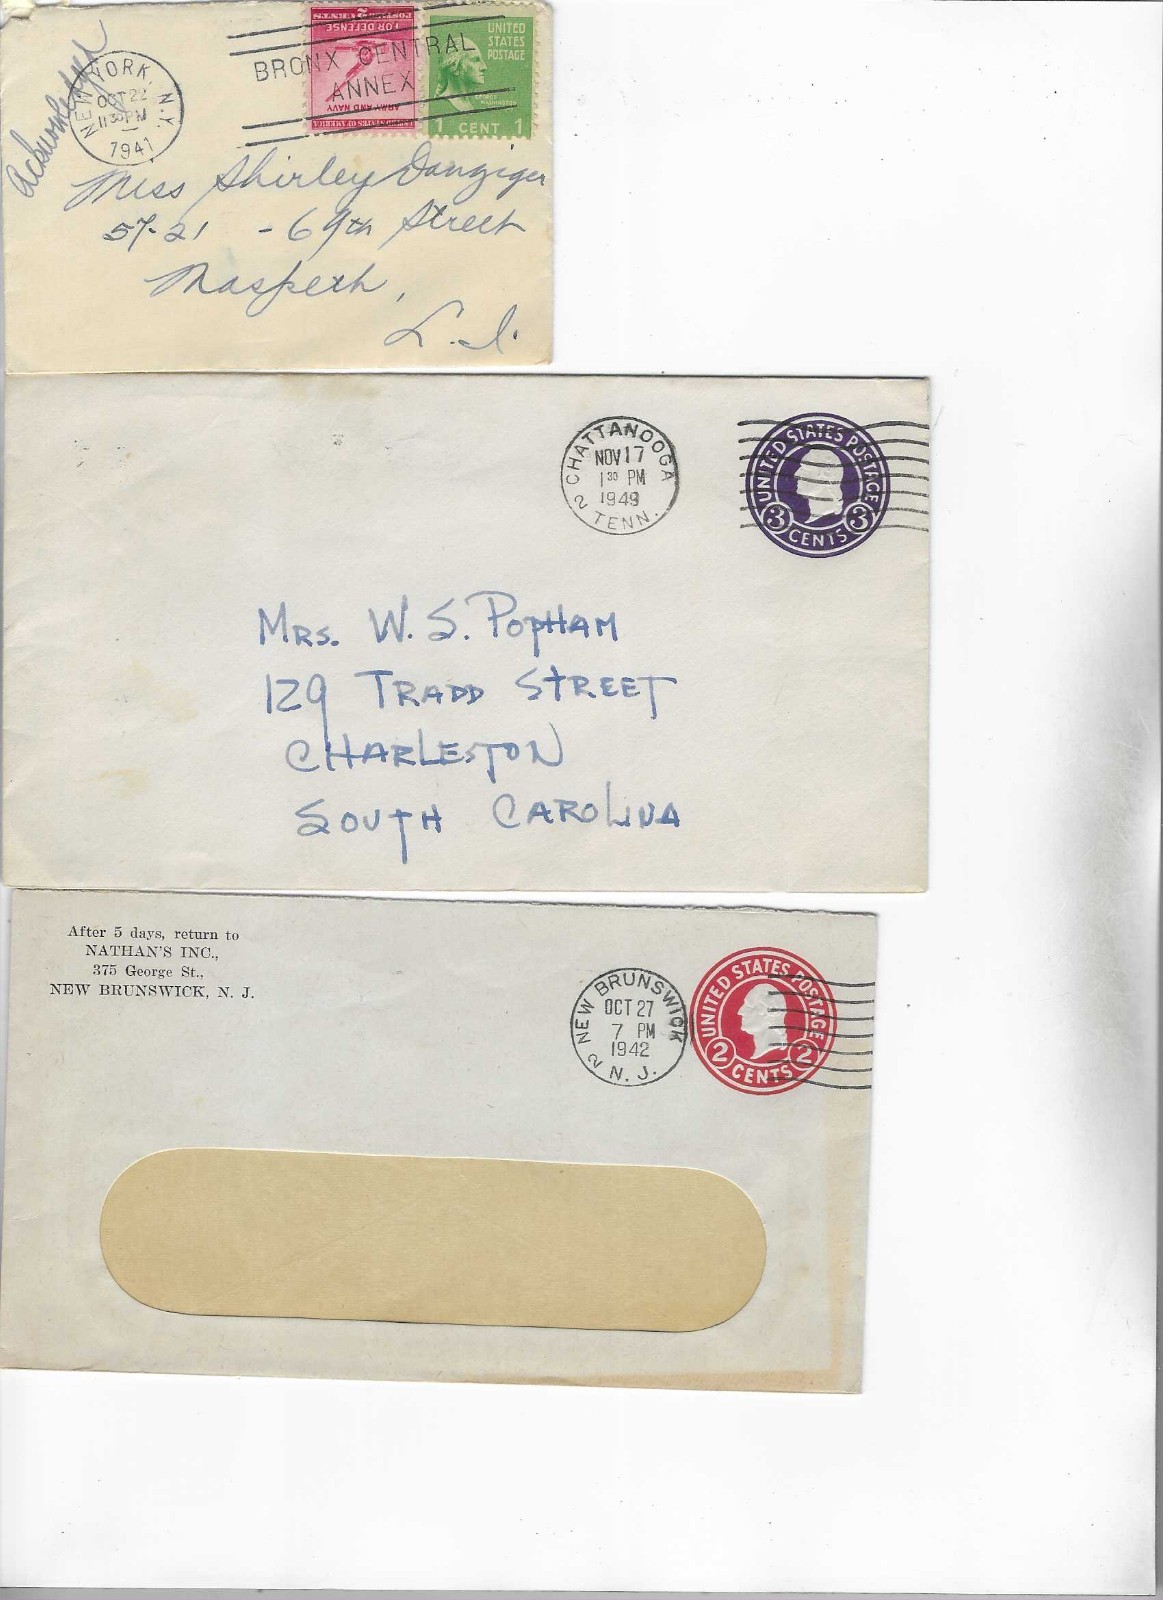 Acknowledged
NEW YORK, N.Y.
OCT 22
11 30 PM
1941
BRONX CENTRAL
ANNEX
POSTAGE 2 CENTS
FOR DEFENSE
ARMY AND NAVY
UNITED STATES OF AMERICA
UNITED
STATES
POSTAGE
GEORGE
WASHINGTON
1 CENT 1
Miss Shirley Danziger
57-21 - 69th Street
Maspeth,
L. I.
CHATTANOOGA
NOV 17
1 30 PM
1949
2 TENN.
UNITED STATES POSTAGE
3 CENTS 3
MRS. W. S. POPHAM
129 TRADD STREET
CHARLESTON
SOUTH CAROLINA
After 5 days, return to
NATHAN'S INC.,
375 George St.,
NEW BRUNSWICK, N. J.
NEW BRUNSWICK
OCT 27
7 PM
1942
2 N. J.
UNITED STATES POSTAGE
2 CENTS 2